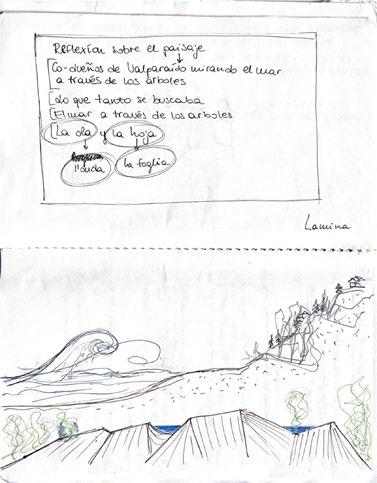 REFLEXIÓN sobre el paisaje
Co-dueños de Valparaíso mirando el mar
a través de los árboles
Lo que tanto se buscaba
El mar a través de los árboles
La ola y la hoja
l'onda la foglia
Lamina